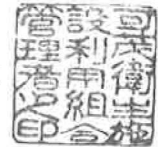 可茂衛生施
設利用組合
管理者之印